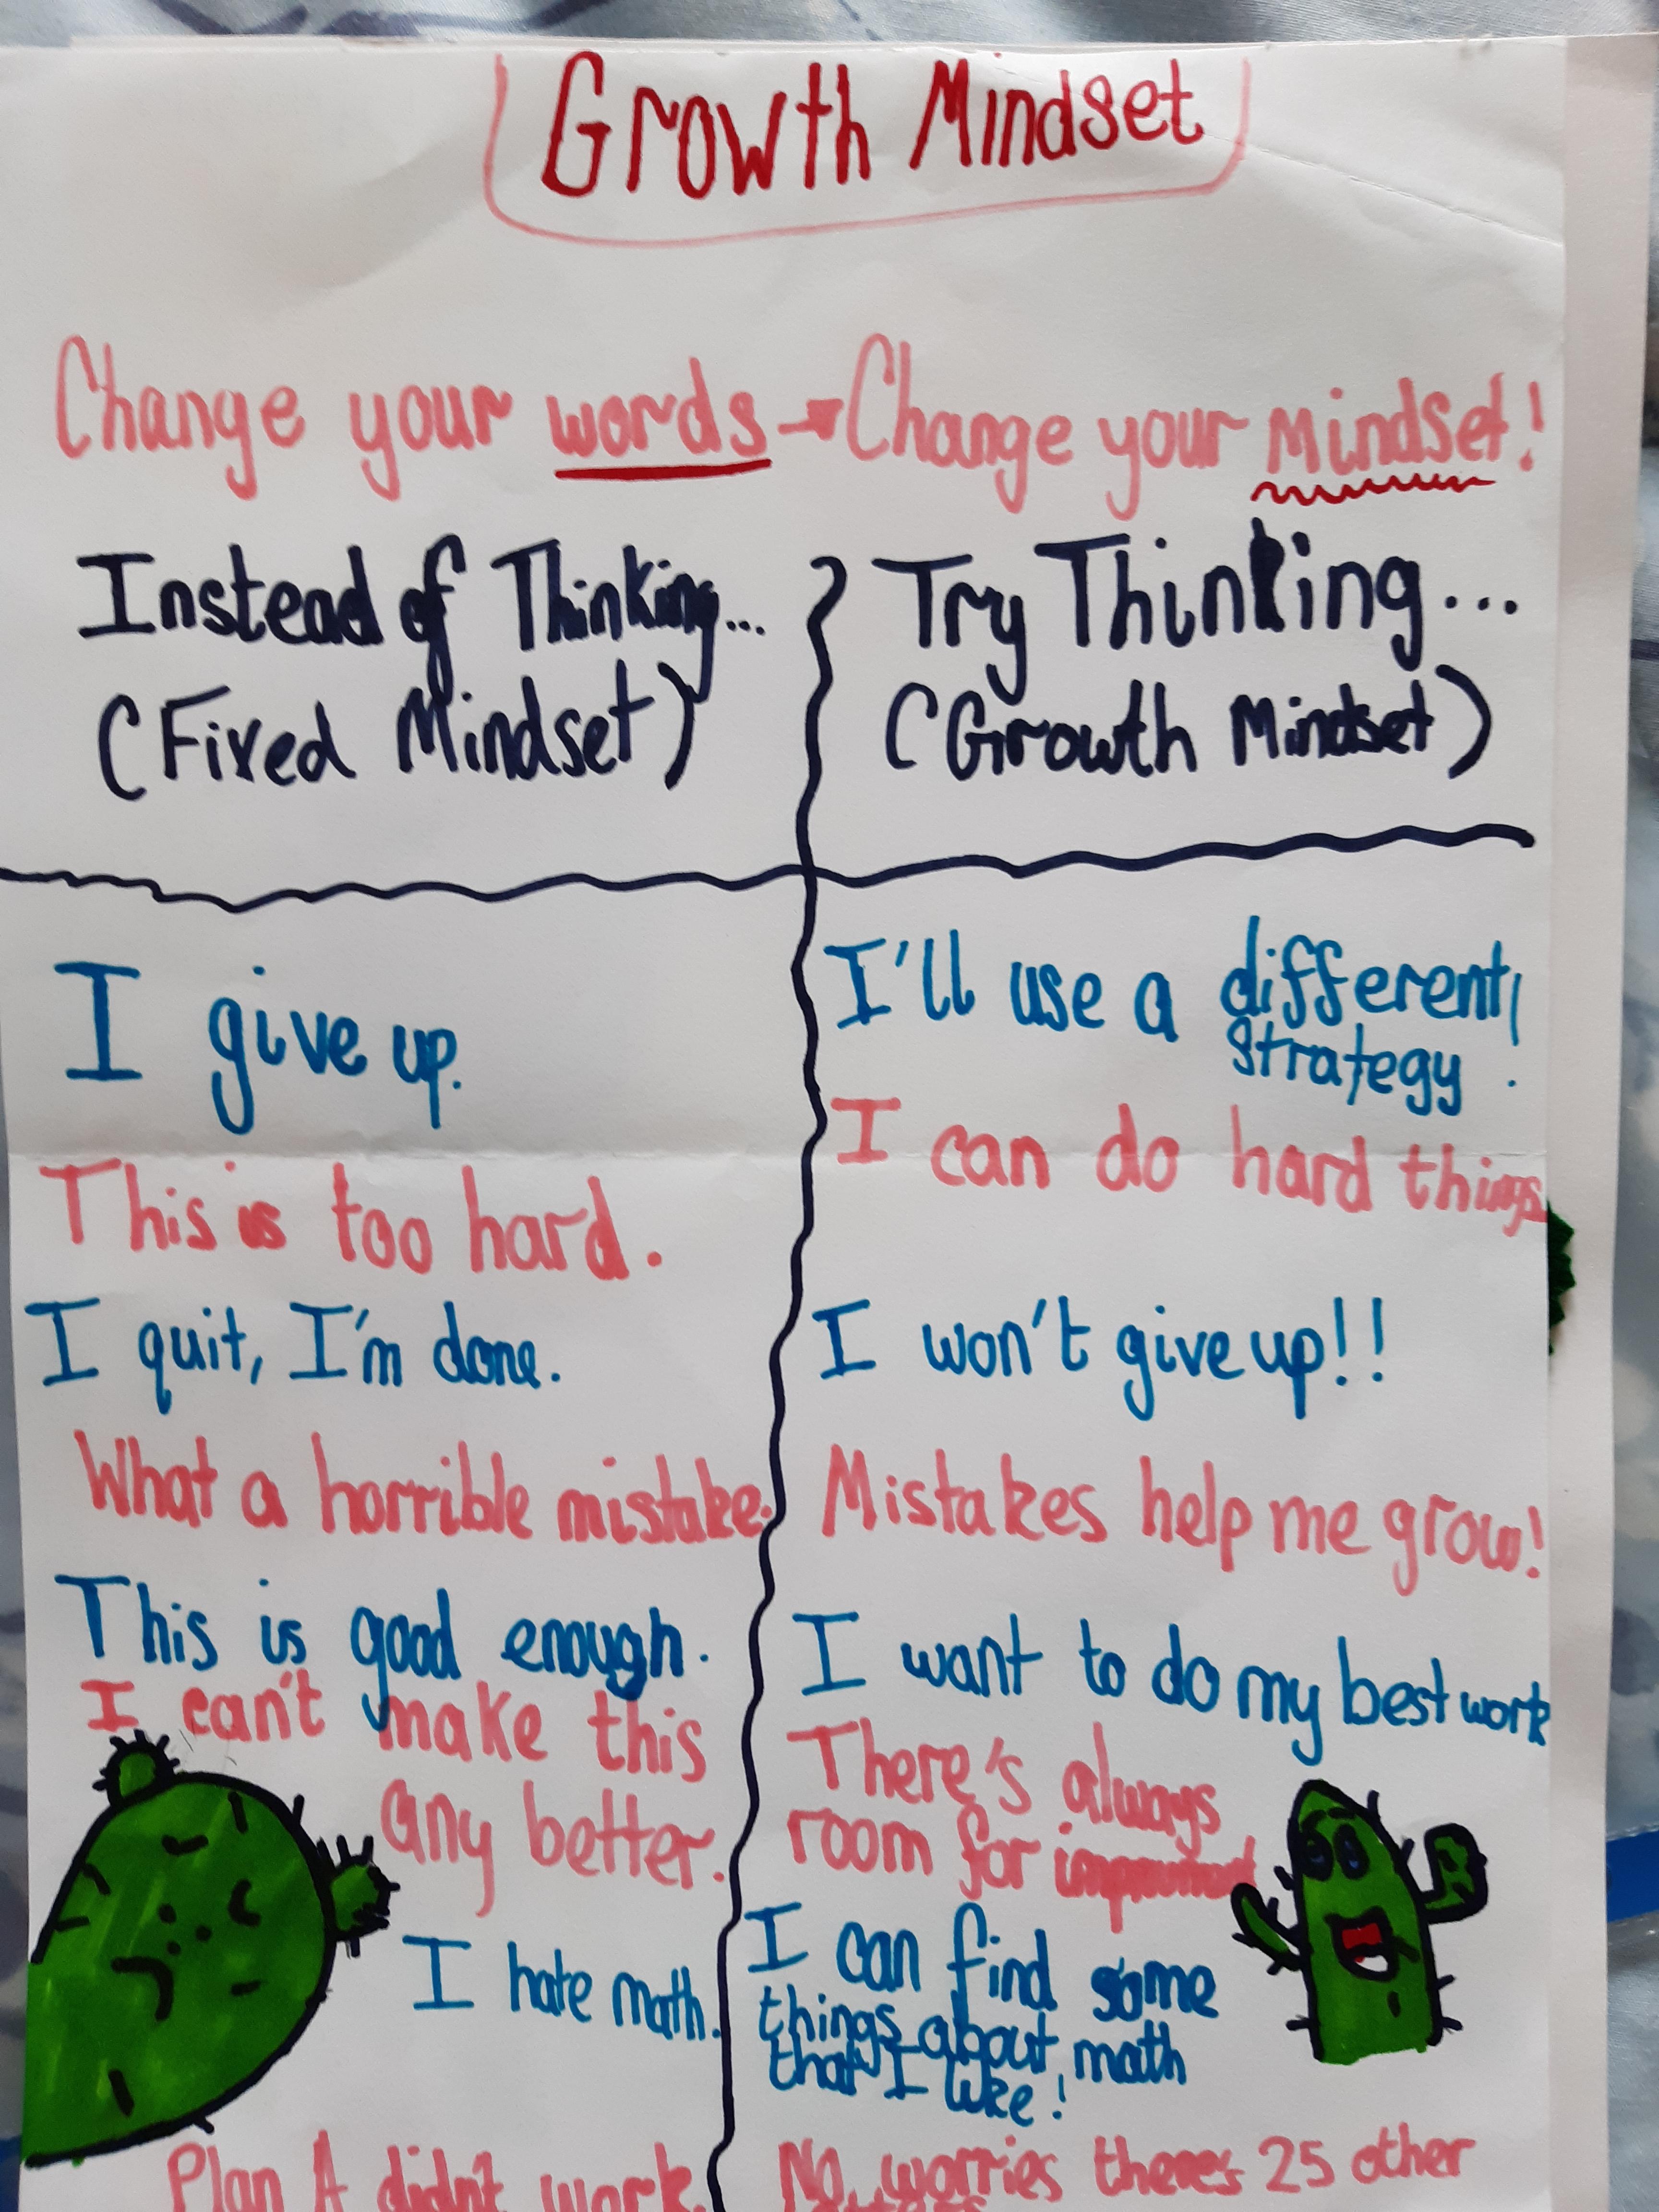 Growth Mindset
Change your words → Change your Mindset!
Instead of Thinking...
(Fixed Mindset)
Try Thinking...
(Growth Mindset)
I give up.
I'll use a different
strategy!
This is too hard.
I can do hard things.
I quit, I'm done.
I won't give up!!
What a horrible mistake.
Mistakes help me grow!
This is good enough.
I want to do my best work
I can't make this
any better.
There's always
room for
I hate math.
I can find some
things about math
that I like!
Plan A didn't work.
No worries there's 25 other